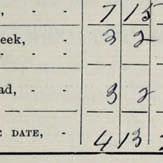 , - - 7 15
eek, - 3 2
- -
ad, - 3 2
E DATE, - 4 13